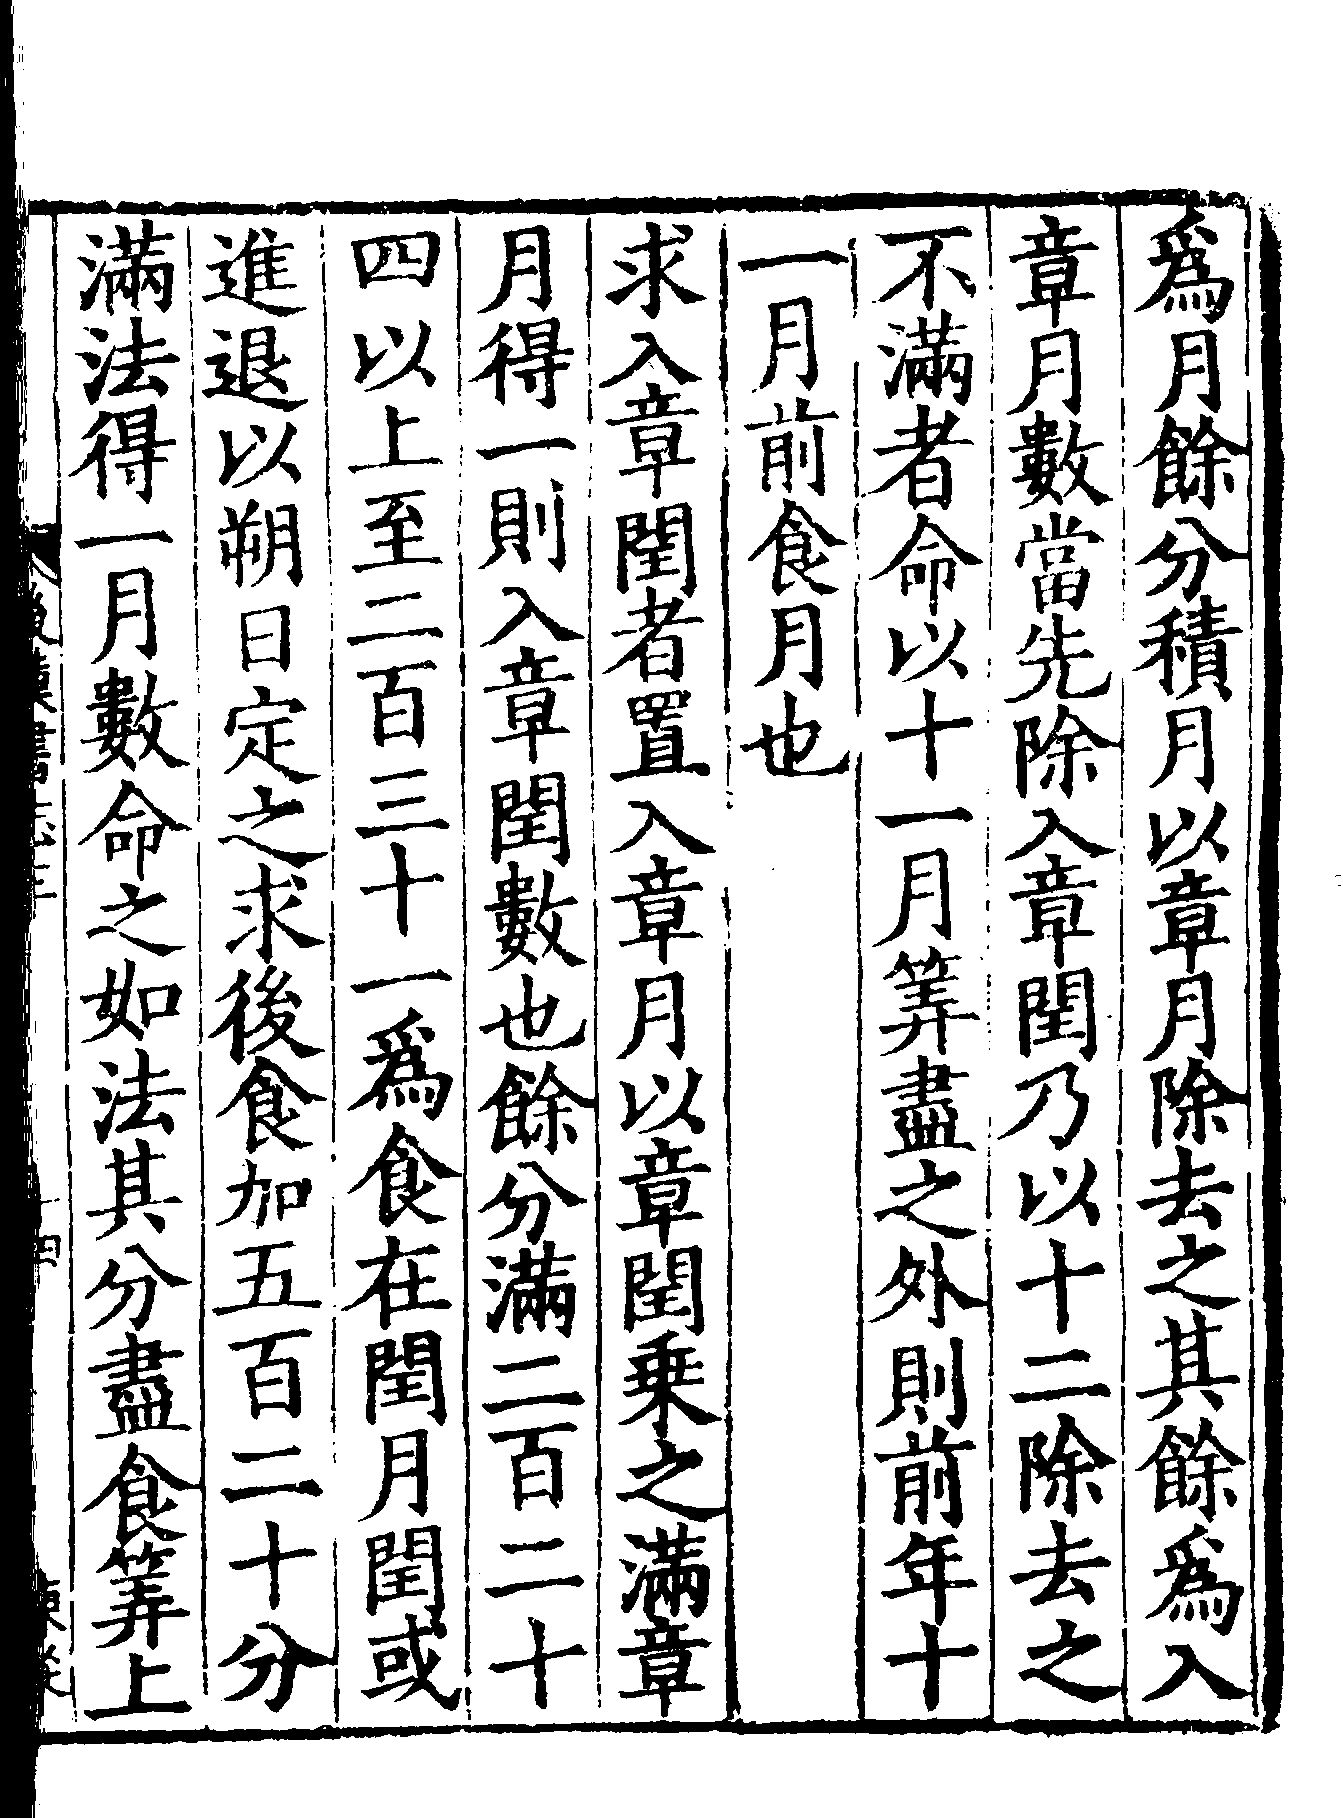 爲月餘分積月以章月除去之其餘爲入
章月數當先除入章閏乃以十二除去之
不滿者命以十一月筭盡之外則前年十
一月前食月也
求入章閏者置入章月以章閏乗之滿章
月得一則入章閏數也餘分滿二百二十
四以上至二百三十一爲食在閏月閏或
進退以朔日定之求後食加五百二十分
滿法得一月數命之如法其分盡食筭上